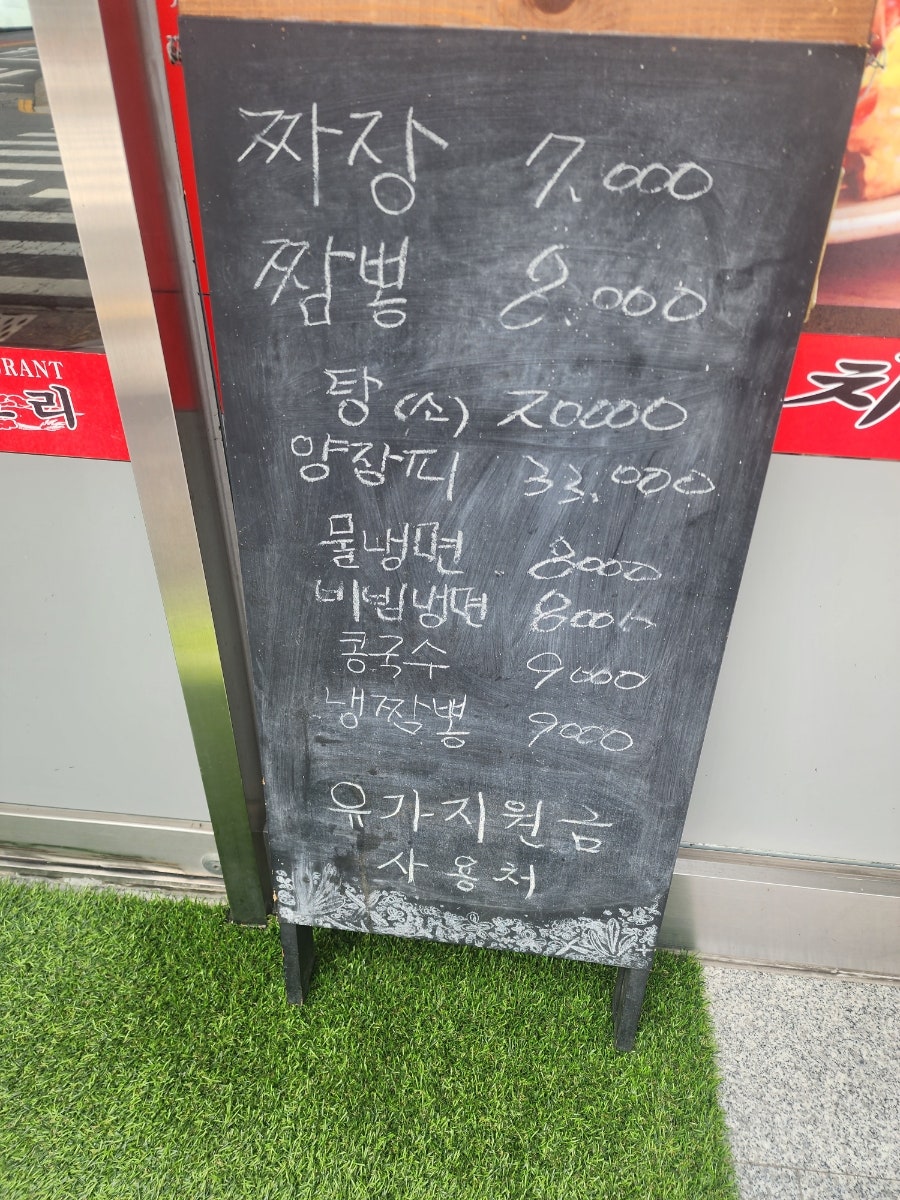 짜장 7.000
짬뽕 8.000
탕(소) 20000
양장피 33.000
물냉면 8000
비빔냉면 8000
콩국수 9000
냉짬뽕 9000
유가지원금
사용처
RANT
리